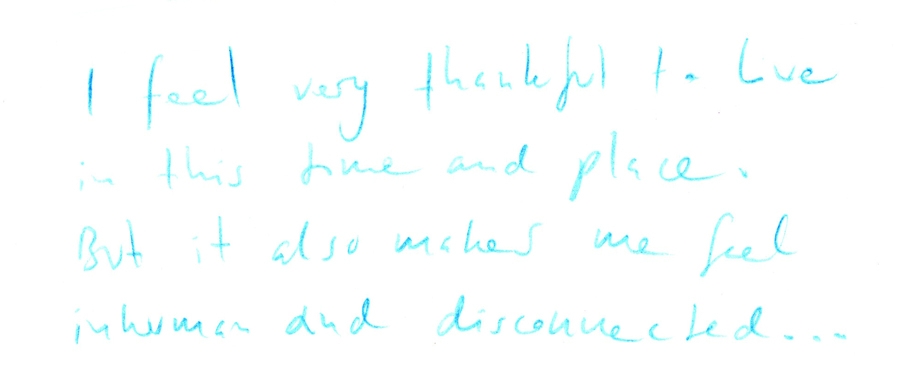 I feel very thankful to live
in this time and place.
But it also makes me feel
inhuman and disconnected...